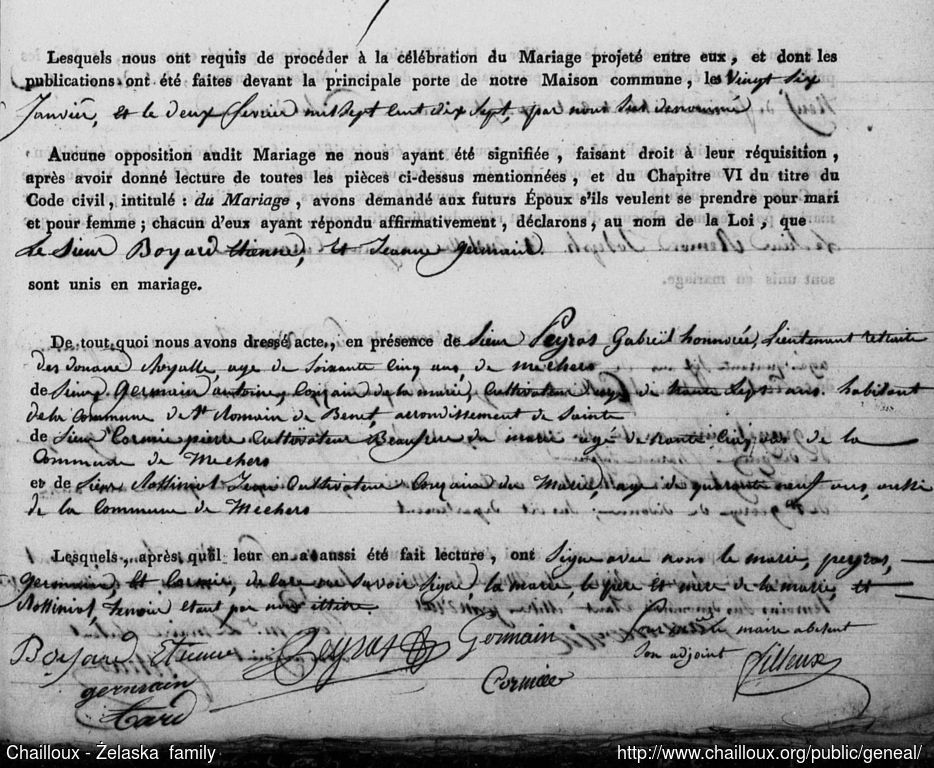 Lesquels nous ont requis de procéder à la célébration du Mariage projeté entre eux, et dont les
publications ont été faites devant la principale porte de notre Maison commune, les Vingt six
Janvier, et le deux fevrier mil sept cent dix sept, par nous sus denommé
Aucune opposition audit Mariage ne nous ayant été signifiée, faisant droit à leur réquisition,
après avoir donné lecture de toutes les pièces ci-dessus mentionnées, et du Chapitre VI du titre du
Code civil, intitulé : du Mariage, avons demandé aux futurs Époux s'ils veulent se prendre pour mari
et pour femme; chacun d'eux ayant répondu affirmativement, déclarons, au nom de la Loi, que
Le Sieur Boyard Etienne, et Jeanne germain.
sont unis en mariage.
De tout quoi nous avons dressé acte, en présence de Sieur Peyras Gabreil honnorée, Lieutenant retraite
des douane Royalle, age de Soixante Cinq ans, de mechers
de Sieur Germain antoine, Couzain de la marié, Cultivateur age de trante Sept ans. habitant
de la Commune de St Romain de Benet, arrondissement de Sainte
de Sieur Cormie pierre Cultivateur Beaufrere du marie agé de trante Cinq ans de la
Commune de Mechers
et de Sieur Jean Cultivateur Couzain du Marié, age de quarante neuf ans, aussi
de la Commune de Mechers
Lesquels, après qu'il leur en a aussi été fait lecture, ont Signe avec nous le marie, peyras,
germain, et Cormie, de Savoir Signé, la marie, le pere et mere de la marie, et
temoin etant par nous
Boyard Etienne Peyras Germain le maire absent
Son adjoint
germain Cormiée
Tard
Chailloux - Żelaska family http://www.chailloux.org/public/geneal/